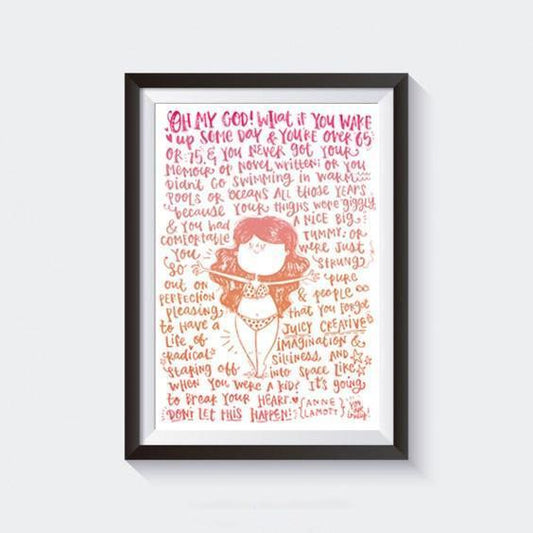 OH MY GOD! WHAT IF YOU WAKE
UP SOME DAY & YOU'RE OVER 65
OR 75, & YOU NEVER GOT YOUR
MEMOIR OR NOVEL WRITTEN; OR YOU
DIDN'T GO SWIMMING IN WARM
POOLS OR OCEANS ALL THOSE YEARS
BECAUSE YOUR THIGHS WERE JIGGLY
& YOU HAD A NICE BIG
COMFORTABLE TUMMY; OR
YOU WERE JUST
SO STRUNG
OUT ON PURE
PERFECTION & PEOPLE
PLEASING THAT YOU FORGOT
TO HAVE A JUICY CREATIVE
LIFE OF IMAGINATION &
RADICAL SILLINESS, AND
STARING OFF INTO SPACE LIKE
WHEN YOU WERE A KID? IT'S GOING
TO BREAK YOUR HEART.
DON'T LET THIS HAPPEN! {ANNE
LAMOTT}
YOU
ARE